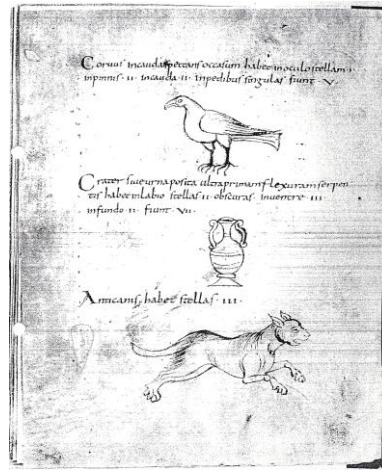 Coruus incauda spectans occasum habet inoculo stellam ·i·
inpinnis ·ii· incauda ·ii· inpedibus singulas fiunt ·v·
Crater siue urna posita ultra primam flexuram serpen
tis habet inlabio stellas ·ii· obscuras inuentre ·iii·
infundo ·ii· fiunt ·vii·
Anticanis habet stellas ·iii·